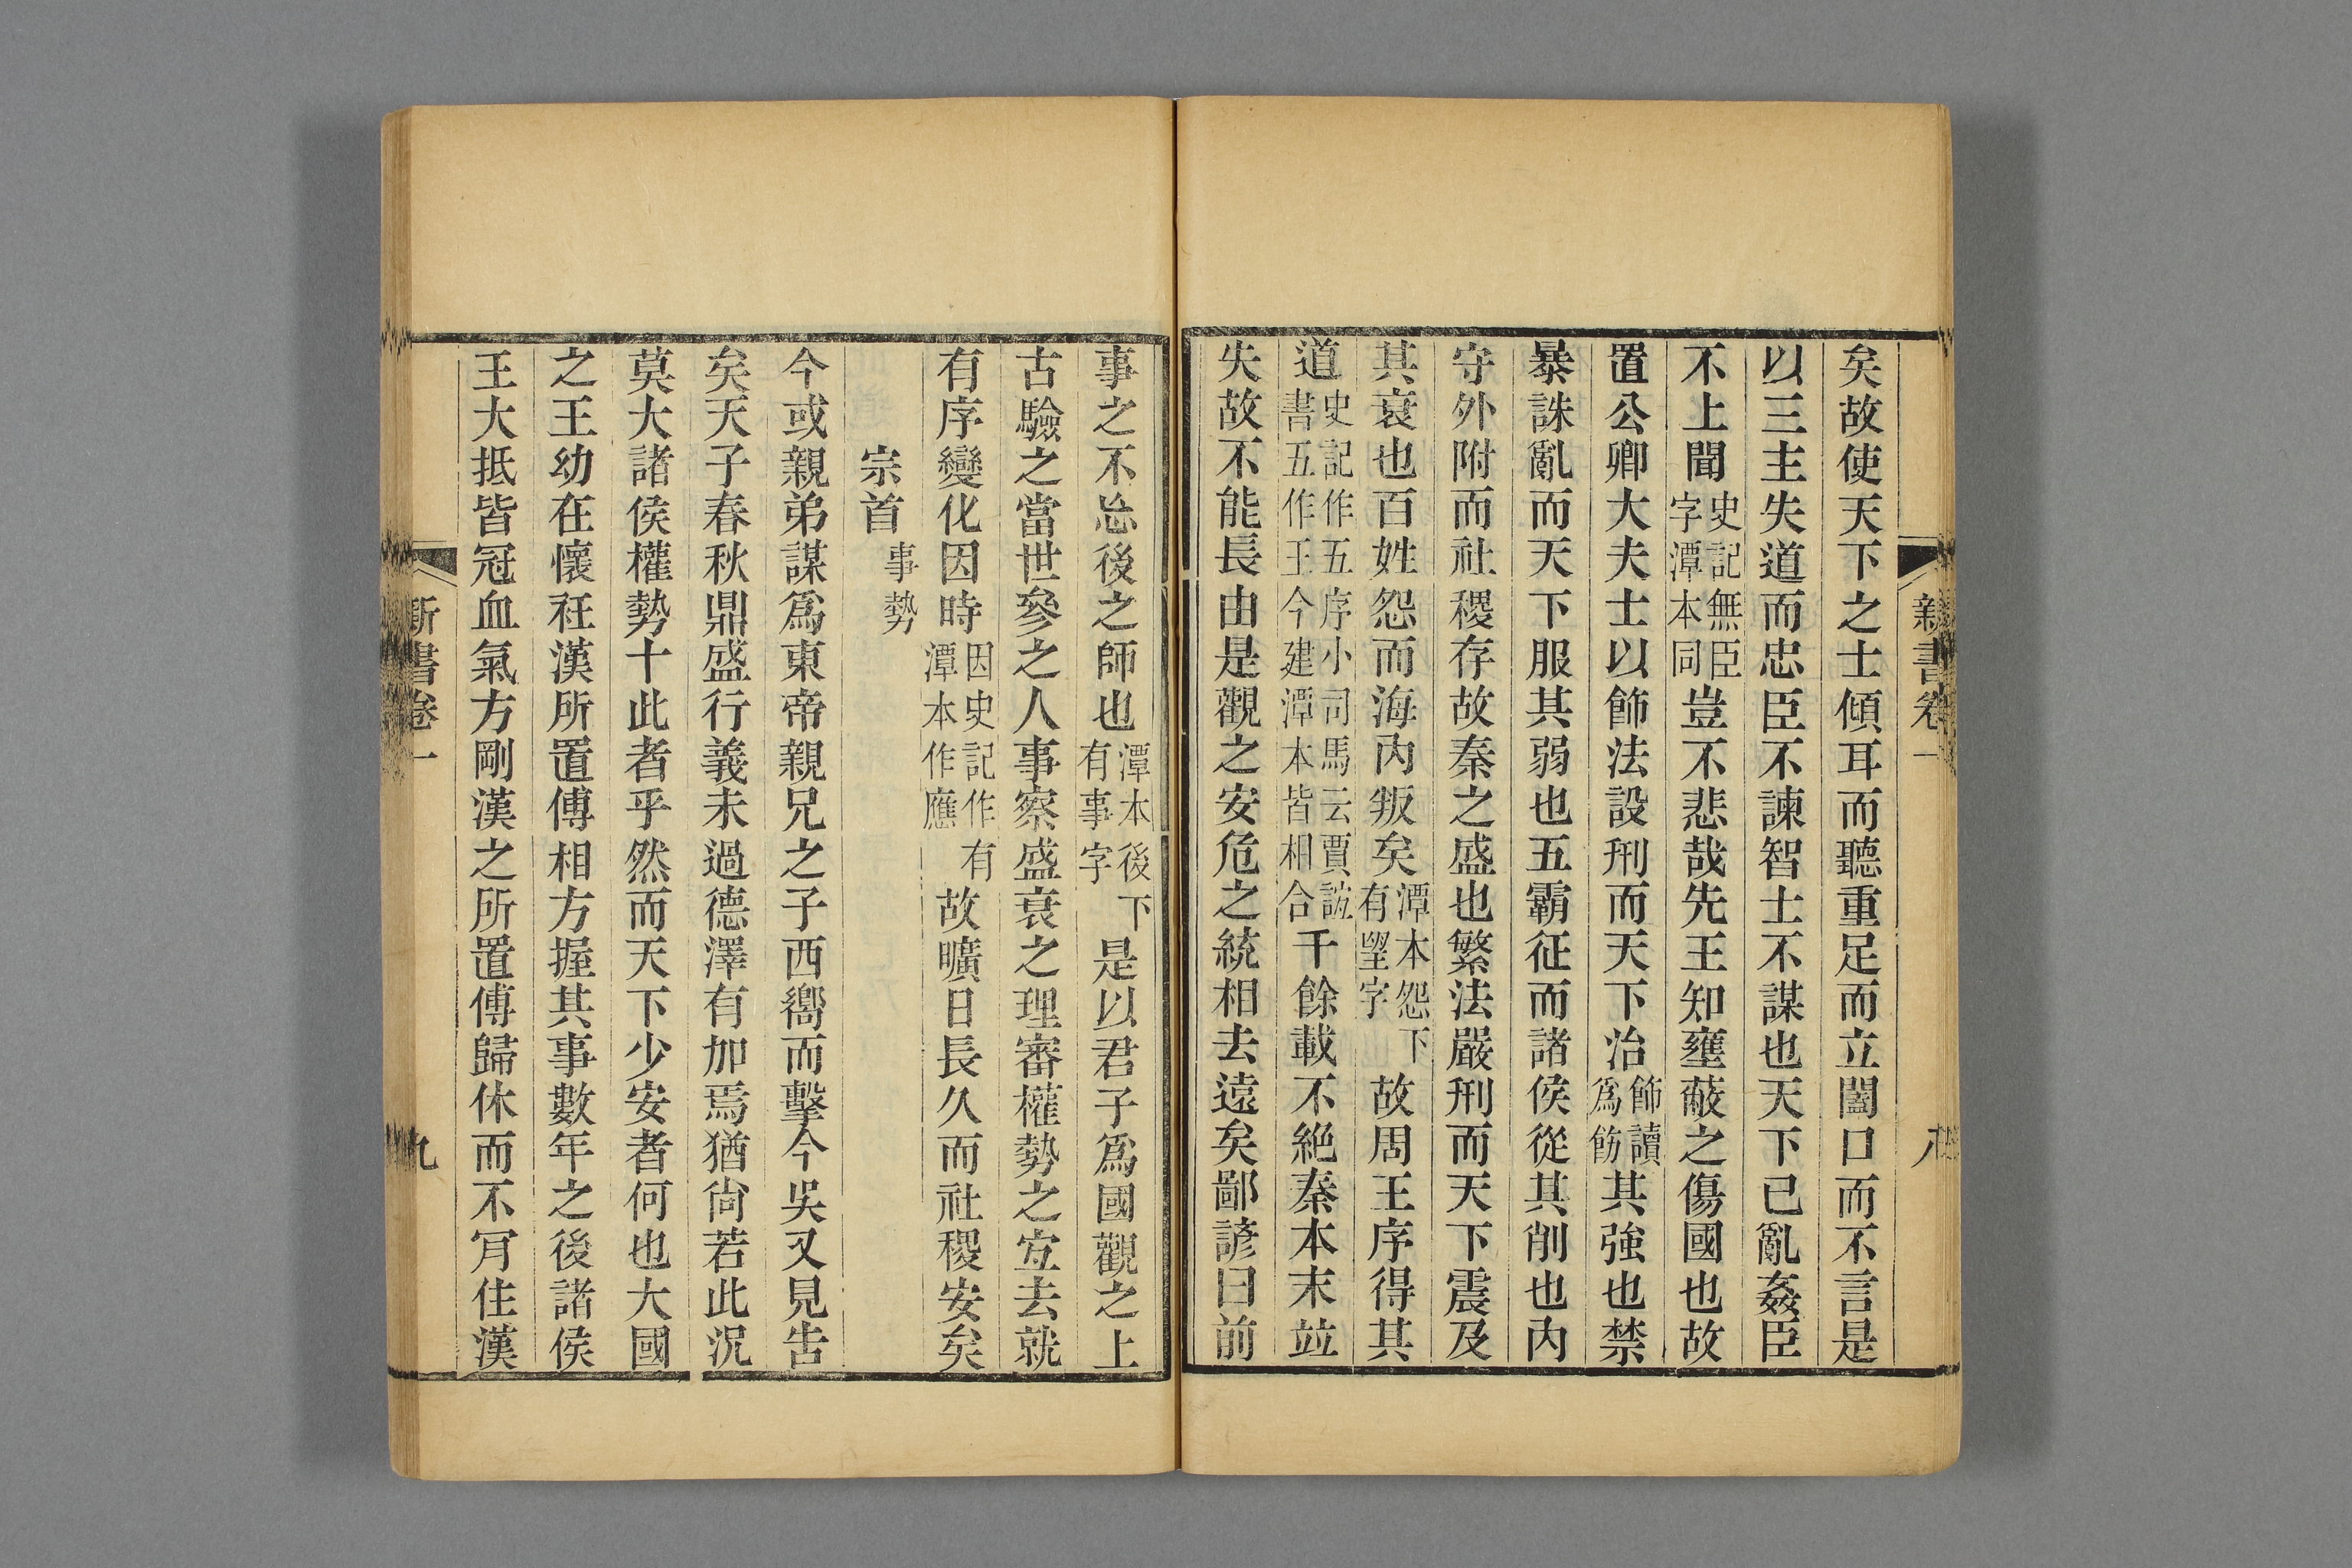 新書卷一
八
矣故使天下之士傾耳而聽重足而立闔口而不言是
以三主失道而忠臣不諫智士不謀也天下已亂姦臣
不上聞史記無臣字潭本同豈不悲哉先王知壅蔽之傷國也故
置公卿大夫士以飾法設刑而天下治飾讀爲飭其強也禁
暴誅亂而天下服其弱也五霸征而諸侯從其削也内
守外附而社稷存故秦之盛也繁法嚴刑而天下震及
其衰也百姓怨而海内叛矣潭本怨下有望字故周王序得其
道史記作五序小司馬云賈誼書五作王今建潭本皆相合千餘載不絶秦本末竝
失故不能長由是觀之安危之統相去遠矣鄙諺曰前
事之不忘後之師也潭本後下有事字是以君子爲國觀之上
古驗之當世參之人事察盛衰之理審權勢之宜去就
有序變化因時因史記作有潭本作應故曠日長久而社稷安矣
宗首事勢
今或親弟謀爲東帝親兄之子西嚮而擊今吳又見告
矣天子春秋鼎盛行義未過德澤有加焉猶尙若此況
莫大諸侯權勢十此者乎然而天下少安者何也大國
之王幼在懷衽漢所置傅相方握其事數年之後諸侯
王大抵皆冠血氣方剛漢之所置傅歸休而不肎住漢
新書卷一
九